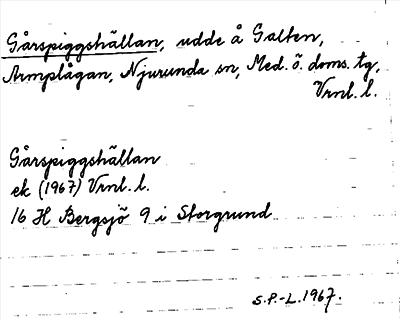 Gårspiggshällan, udde å Galten,
Armplågan, Njurunda sn, Med. ö. doms. tg,
Vrnl. l.
Gårspiggshällan
ek (1967) Vrnl. l.
16 H Bergsjö 9 i Storgrund
S.P.-L. 1967.